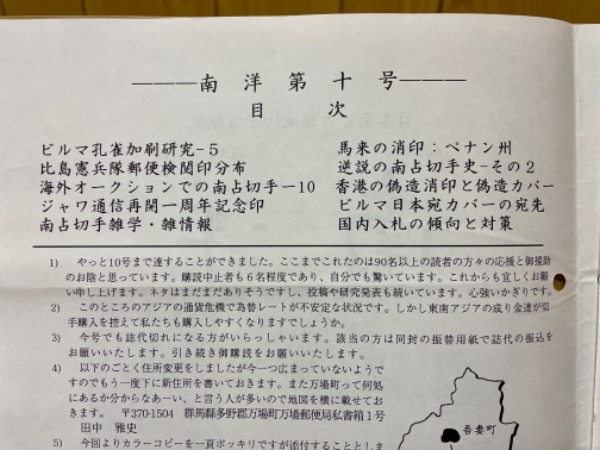 ———南 洋 第 十 号———
目 次
ビルマ孔雀加刷研究-5
比島憲兵隊郵便検閲印分布
海外オークションでの南占切手ー10
ジャワ通信再開一周年記念印
南占切手雑学・雑情報
馬来の消印：ペナン州
逆説の南占切手史-その2
香港の偽造消印と偽造カバー
ビルマ日本宛カバーの宛先
国内入札の傾向と対策
1) やっと10号まで達することができました。ここまでこれたのは90名以上の読者の方々の応援と御援助
のお陰と思っています。購読中止者も6名程度であり、自分でも驚いています。これからも宜しくお願
い申し上げます。ネタはまだまだありそうですし、投稿や研究発表も続いています。心強いかぎりです。
2) このところのアジアの通貨危機で為替レートが不安定な状況です。しかし東南アジアの成り金達が切
手購入を控えて私たちも購入しやすくなりますでしょうか。
3) 今号でも誌代切れになる方がいらっしゃいます。該当の方は同封の振替用紙で誌代の振込を
お願いいたします。引き続き御購読をお願いいたします。
4) 以下のごとく住所変更をしましたが今一つ広まっていないようで
すのでもう一度下に新住所を書いておきます。また万場町って何処
にあるか分からなあーい、と言う人が多いので地図を横に載せてお
きます。 〒370-1504 群馬縣多野郡万場町万場郵便局私書箱1号
田中 雅史
5) 今回よりカラーコピーを一頁ポッキリですが添付することとしま
吾妻町